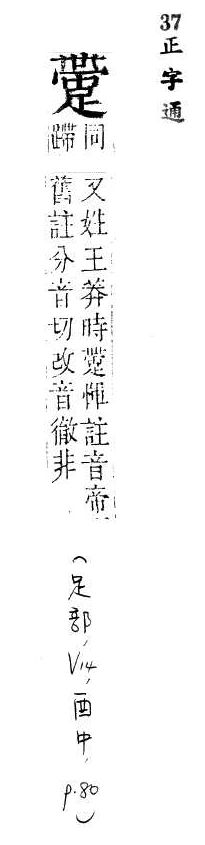 37 正字通
同蹛
又姓王莽時惲註音帝
舊註分音切改音徹非
(足部, V14, 酉中, p.80)